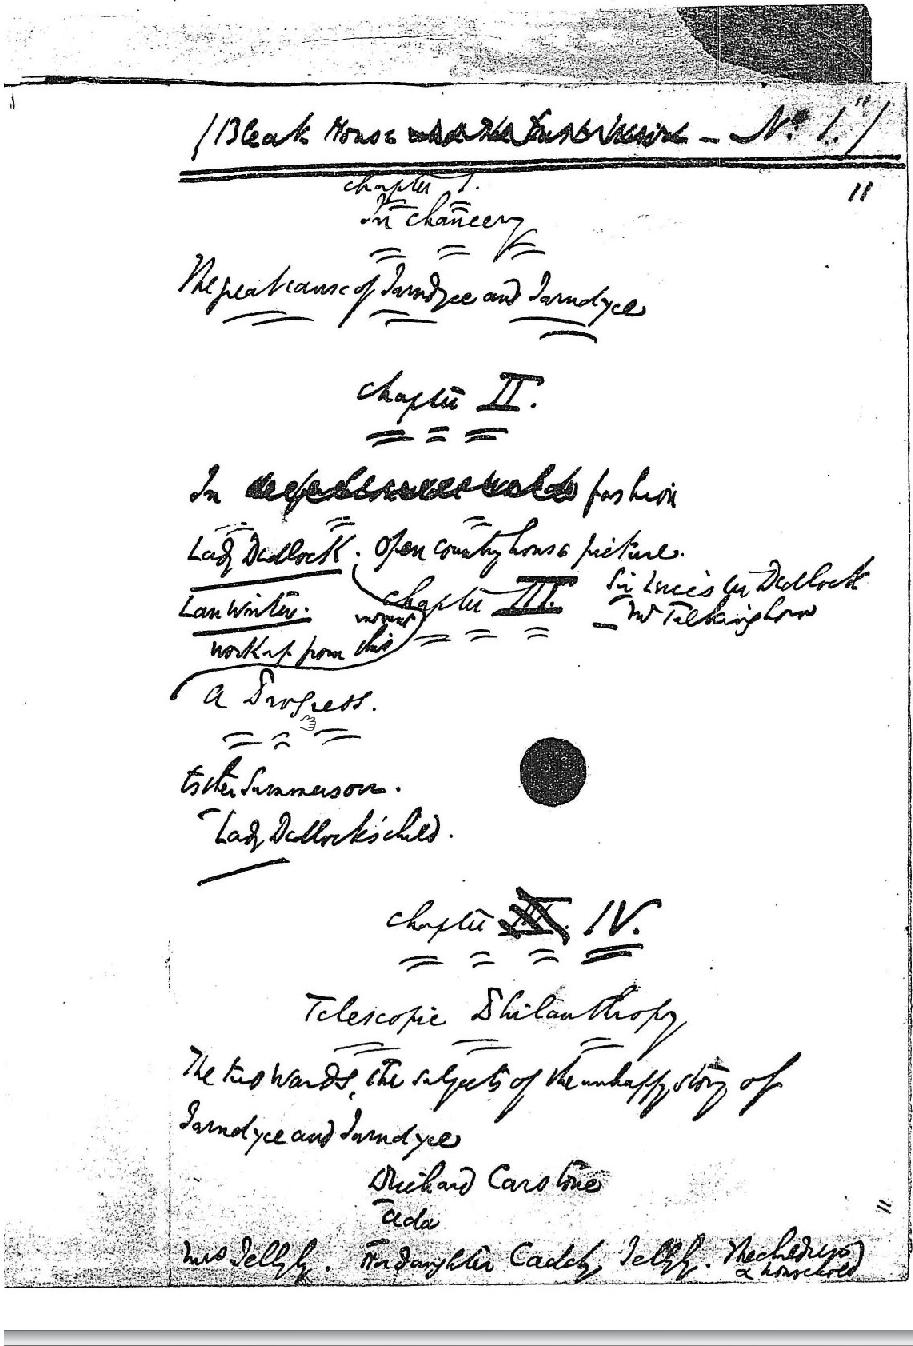 (Bleak House — No. 1.)
Chapter I.
In Chancery
The great cause of Jarndyce and Jarndyce
Chapter II.
In fashion
Lady Dedlock. Open country house picture.
Law Writer.
work up from this moment
Chapter III.
Sir Leicester Dedlock
Mr Tulkinghorn
A Progress.
Esther Summerson.
Lady Dedlock's child.
Chapter IV.
Telescopic Philanthropy
The two wards, the subjects of the unhappy story of
Jarndyce and Jarndyce
Richard Carstone
Ada
Mrs Jellyby. Her daughter Caddy Jellyby. The children
a household